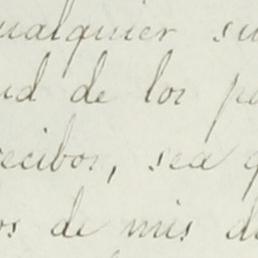 ualquier su
ud de los pa
ecibos, sea q
os de mis d